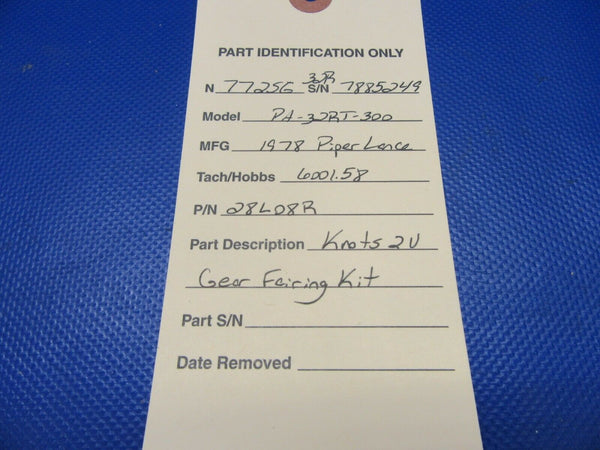 PART IDENTIFICATION ONLY
N 7725G S/N 32R 7885249
Model PA-32RT-300
MFG 1978 Piper Lance
Tach/Hobbs 6001.58
P/N 28LO8R
Part Description Knots 2U
Gear Fairing Kit
Part S/N
Date Removed